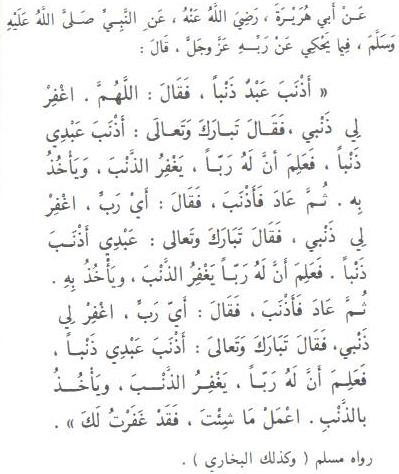 عَنْ أَبِي هُرَيْرَةَ ، رَضِيَ اللَّهُ عَنْهُ ، عَنِ النَّبِيِّ صَلَّىٰ اللَّهُ عَلَيْهِ
وَسَلَّمَ ، فِيمَا يَحْكِي عَنْ رَبِّهِ عَزَّ وَجَلَّ ، قَالَ :
« أَذْنَبَ عَبْدٌ ذَنْباً ، فَقَالَ : اللَّهُمَّ . اغْفِرْ
لِي ذَنْبِي ، فَقَالَ تَبَارَكَ وَتَعَالَى : أَذْنَبَ عَبْدِي
ذَنْباً ، فَعَلِمَ أَنَّ لَهُ رَبّاً ، يَغْفِرُ الذَّنْبَ ، وَيَأْخُذُ
بِهِ . ثُمَّ عَادَ فَأَذْنَبَ ، فَقَالَ : أَيْ رَبِّ ، اغْفِرْ
لِي ذَنْبِي ، فَقَالَ تَبَارَكَ وَتَعَالى : عَبْدِي أَذْنَبَ
ذَنْباً . فَعَلِمَ أَنَّ لَهُ رَبّاً يَغْفِرُ الذَّنْبَ ، وَيَأْخُذُ بِهِ .
ثُمَّ عَادَ فَأَذْنَبَ ، فَقَالَ : أَيّ رَبِّ ، اغْفِرْ لِي
ذَنْبِي، فَقَالَ تَبَارَكَ وَتَعَالَىَ : أَذْنَبَ عَبْدِي ذَنْباً ،
فَعَلِمَ أَنَّ لَهُ رَبّاً ، يَغْفِرُ الذَّنْبَ ، وَيَأْخُذُ
بالذَّنْبِ . اعْمَلْ مَا شِئْتَ ، فَقَدْ غَفَرْتُ لَكَ » .
رواه مسلم ( وكذلك البخاري ) .